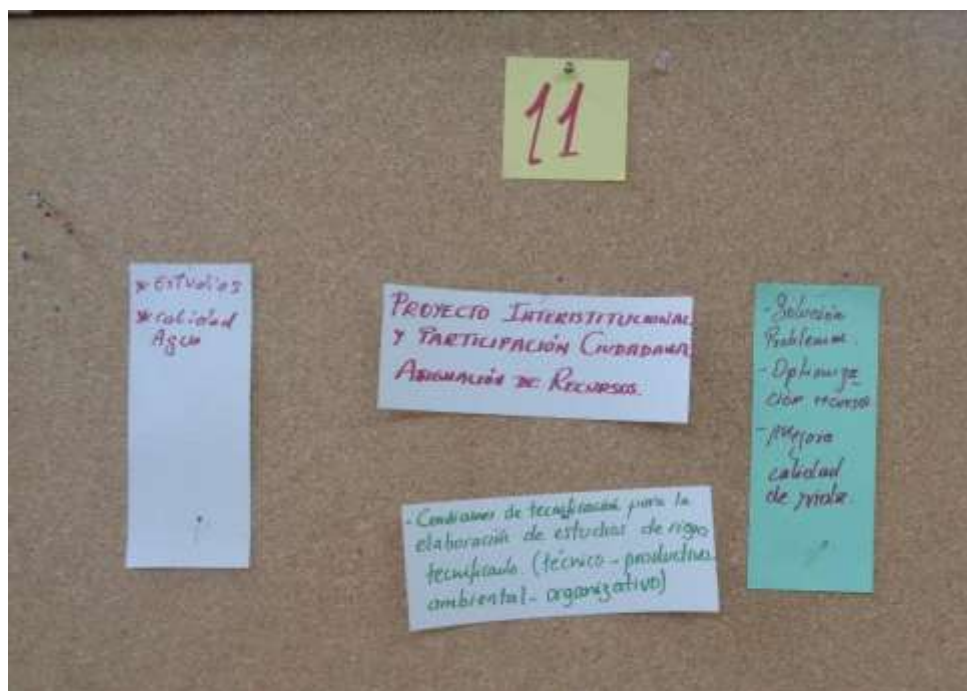 11
* Estudios
* calidad
Agua
PROYECTO INTERISTITUCIONAL
Y PARTICIPACIÓN CIUDADANA,
ASIGNACIÓN DE RECURSOS.
- Condiciones de tecnificación para la
elaboración de estudios de riego
tecnificado (técnico - productivo
ambiental - organizativo)
- Solución
Problemas.
- Optimiza
ción recursos
- Mejora
calidad
de vida.